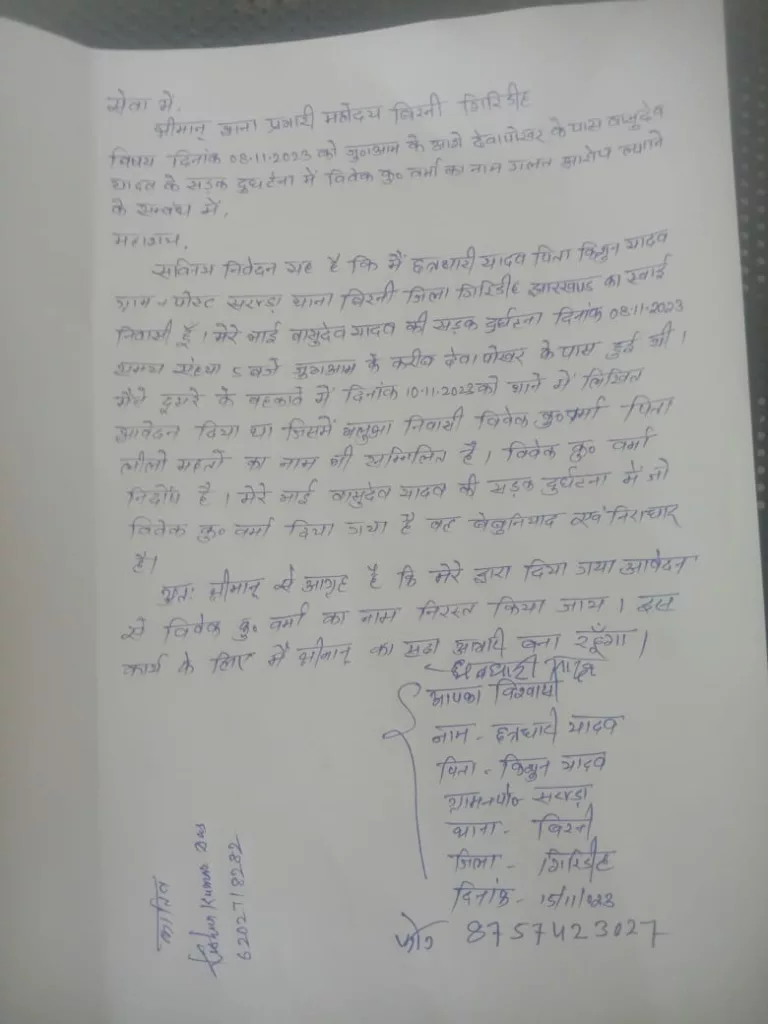 सेवा में,
श्रीमान् थाना प्रभारी महोदय बिरनी गिरिडीह
विषय दिनांक 08.11.2023 को जुठाआम के आगे देवापोखर के पास वासुदेव
यादव के सड़क दुर्घटना में विवेक कु० वर्मा का नाम गलत आरोप लगाने
के सम्बंध में,
महाशय,
सविनय निवेदन यह है कि मैं छत्रधारी यादव पिता किशुन यादव
ग्राम + पोस्ट सरण्डा थाना बिरनी जिला गिरिडीह झारखण्ड का स्थाई
निवासी हूँ। मेरे भाई वासुदेव यादव की सड़क दुर्घटना दिनांक 08.11.2023
समय संध्या 5 बजे जुठाआम के करीब देवापोखर के पास हुई थी।
मैंने दूसरे के बहकावे में दिनांक 10.11.2023 को थाने में लिखित
आवेदन दिया था जिसमें बलुआ निवासी विवेक कु० वर्मा पिता
लीलो महतो का नाम भी सम्मिलित है। विवेक कु० वर्मा
निर्दोष है। मेरे भाई वासुदेव यादव की सड़क दुर्घटना में जो
विवेक कु० वर्मा दिया गया है वह बेबुनियाद एवं निराधार
है।
अतः श्रीमान् से आग्रह है कि मेरे द्वारा दिया गया आवेदन
से विवेक कु० वर्मा का नाम निरस्त किया जाय। इस
कार्य के लिए मैं श्रीमान् का सदा आभारी बना रहूँगा।
छत्रधारी यादव
आपका विश्वासी
नाम - छत्रधारी यादव
पिता - किशुन यादव
ग्राम+पो० सरण्डा
थाना - बिरनी
जिला - गिरिडीह
दिनांक - 15/11/023
फो० 8757423027
कातिब
Kumar Das
6202718282